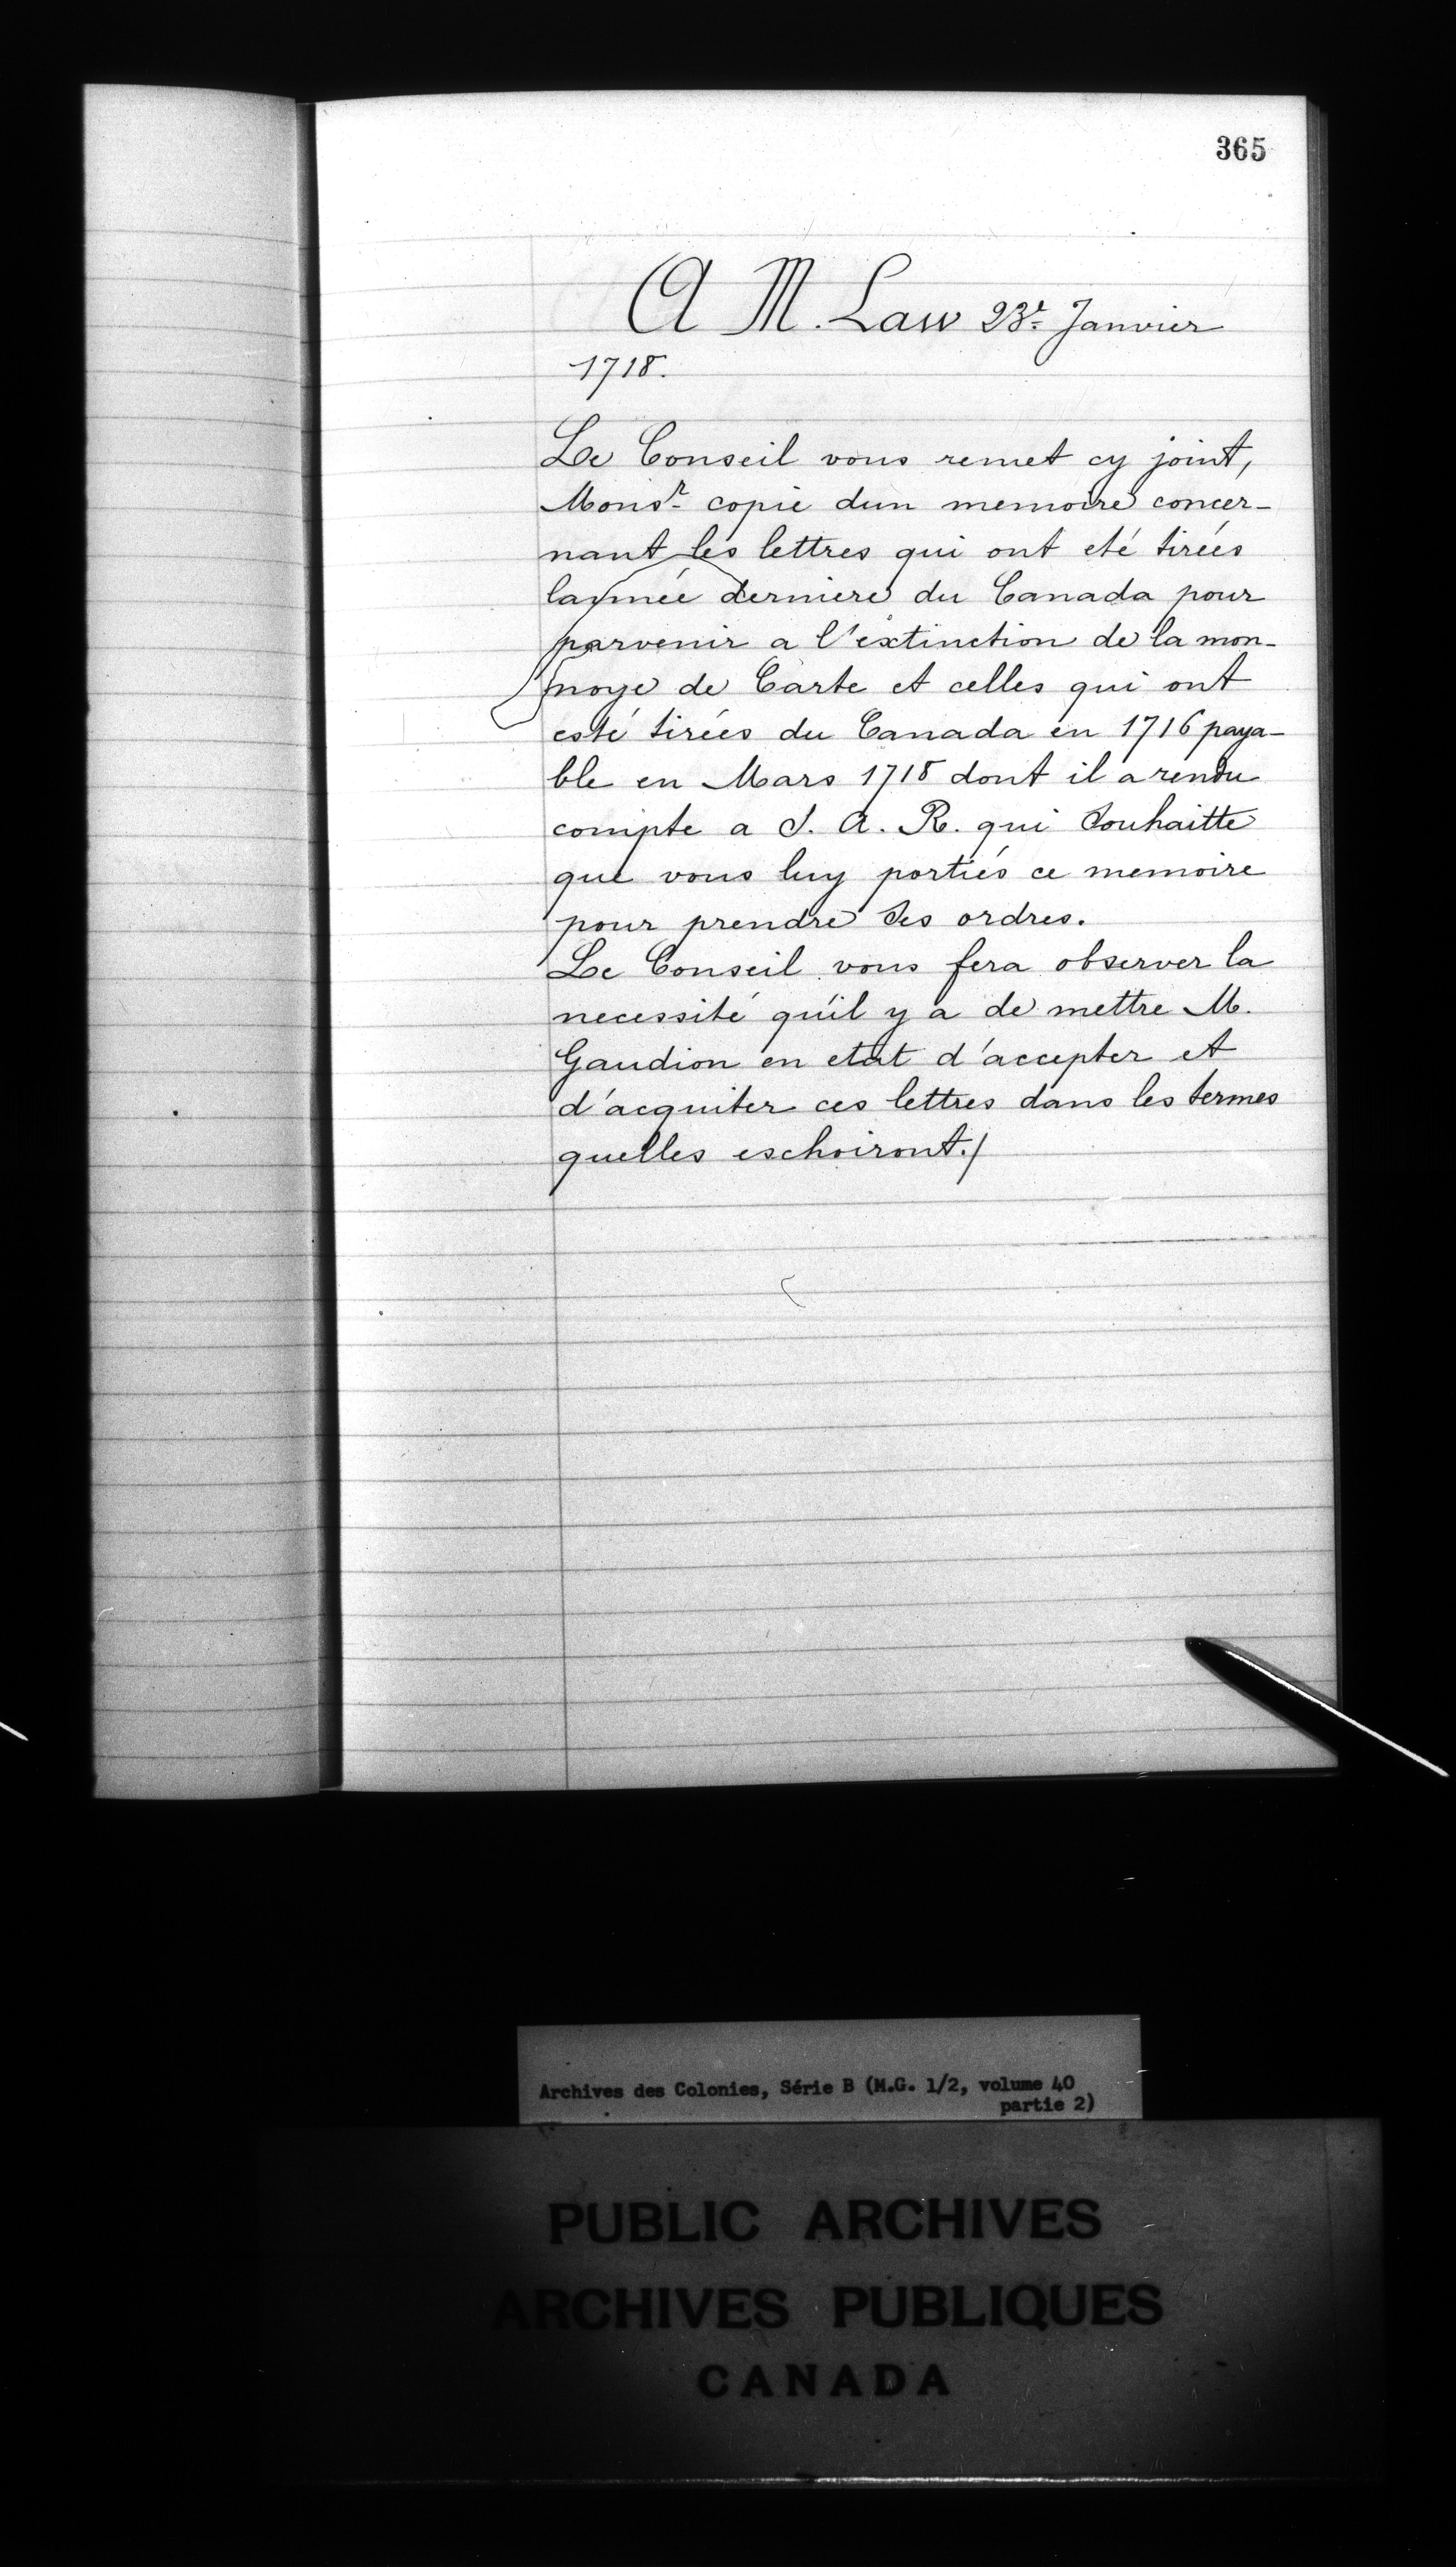 365
A M. Law 23r Janvier
1718.
Le Conseil vous remet cy joint,
Monsr copie dun memoire concer-
nant les lettres qui ont eté tirées
lannée derniere du Canada pour
parvenir a l'extinction de la mon-
noye de Carte et celles qui ont
esté tirées du Canada en 1716 paya-
ble en Mars 1718 dont il a rendu
compte a S. A. R. qui Souhaitte
que vous luy portiés ce memoire
pour prendre Ses ordres.
Le Conseil vous fera observer la
necessité qu'il y a de mettre M.
Gaudion en etat d'accepter et
d'acquiter ces lettres dans les termes
quelles eschoiront./
Archives des Colonies, Série B (M.G. 1/2, volume 40
partie 2)
PUBLIC ARCHIVES
ARCHIVES PUBLIQUES
CANADA